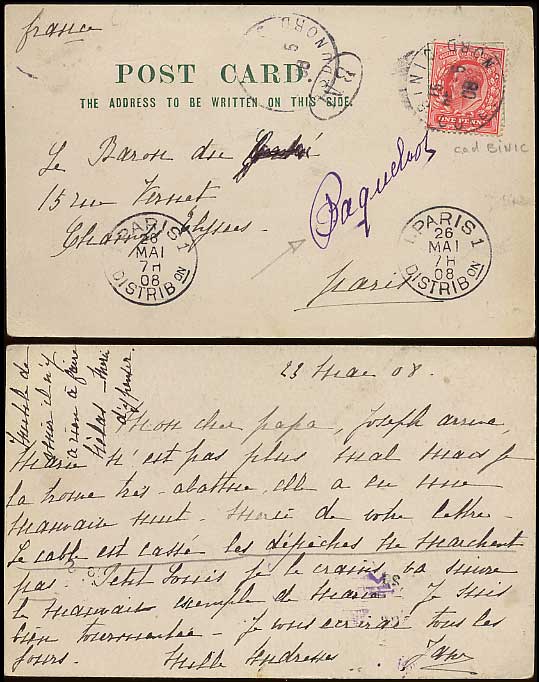 france
POST CARD.
THE ADDRESS TO BE WRITTEN ON THIS SIDE.
ONE PENNY
cad BINIC
Le Baron du
15 rue Vernet
Champs Elysees
Paquebot
Paris
PARIS 1
26
MAI
7H
08
DISTRIB ON
PARIS 1
26
MAI
7H
08
DISTRIB ON
23 Mai 08.
Mon cher papa, Joseph arrive,
Marie n'est pas plus mal mais je
la trouve très abattue, elle a eu une
mauvaise nuit. Merci de votre lettre.
Le cable est cassé les dépêches ne marchent
pas. Petit Louis je le crains va suivre
le mauvais exemple de Marie. Je suis
bien tourmentée. Je vous écrirai tous les
jours. Mille tendresses
Inutile de
a rien à faire
hélas